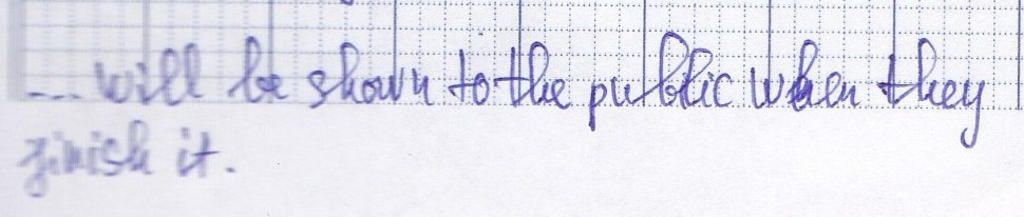 ... will be shown to the public when they
finish it.